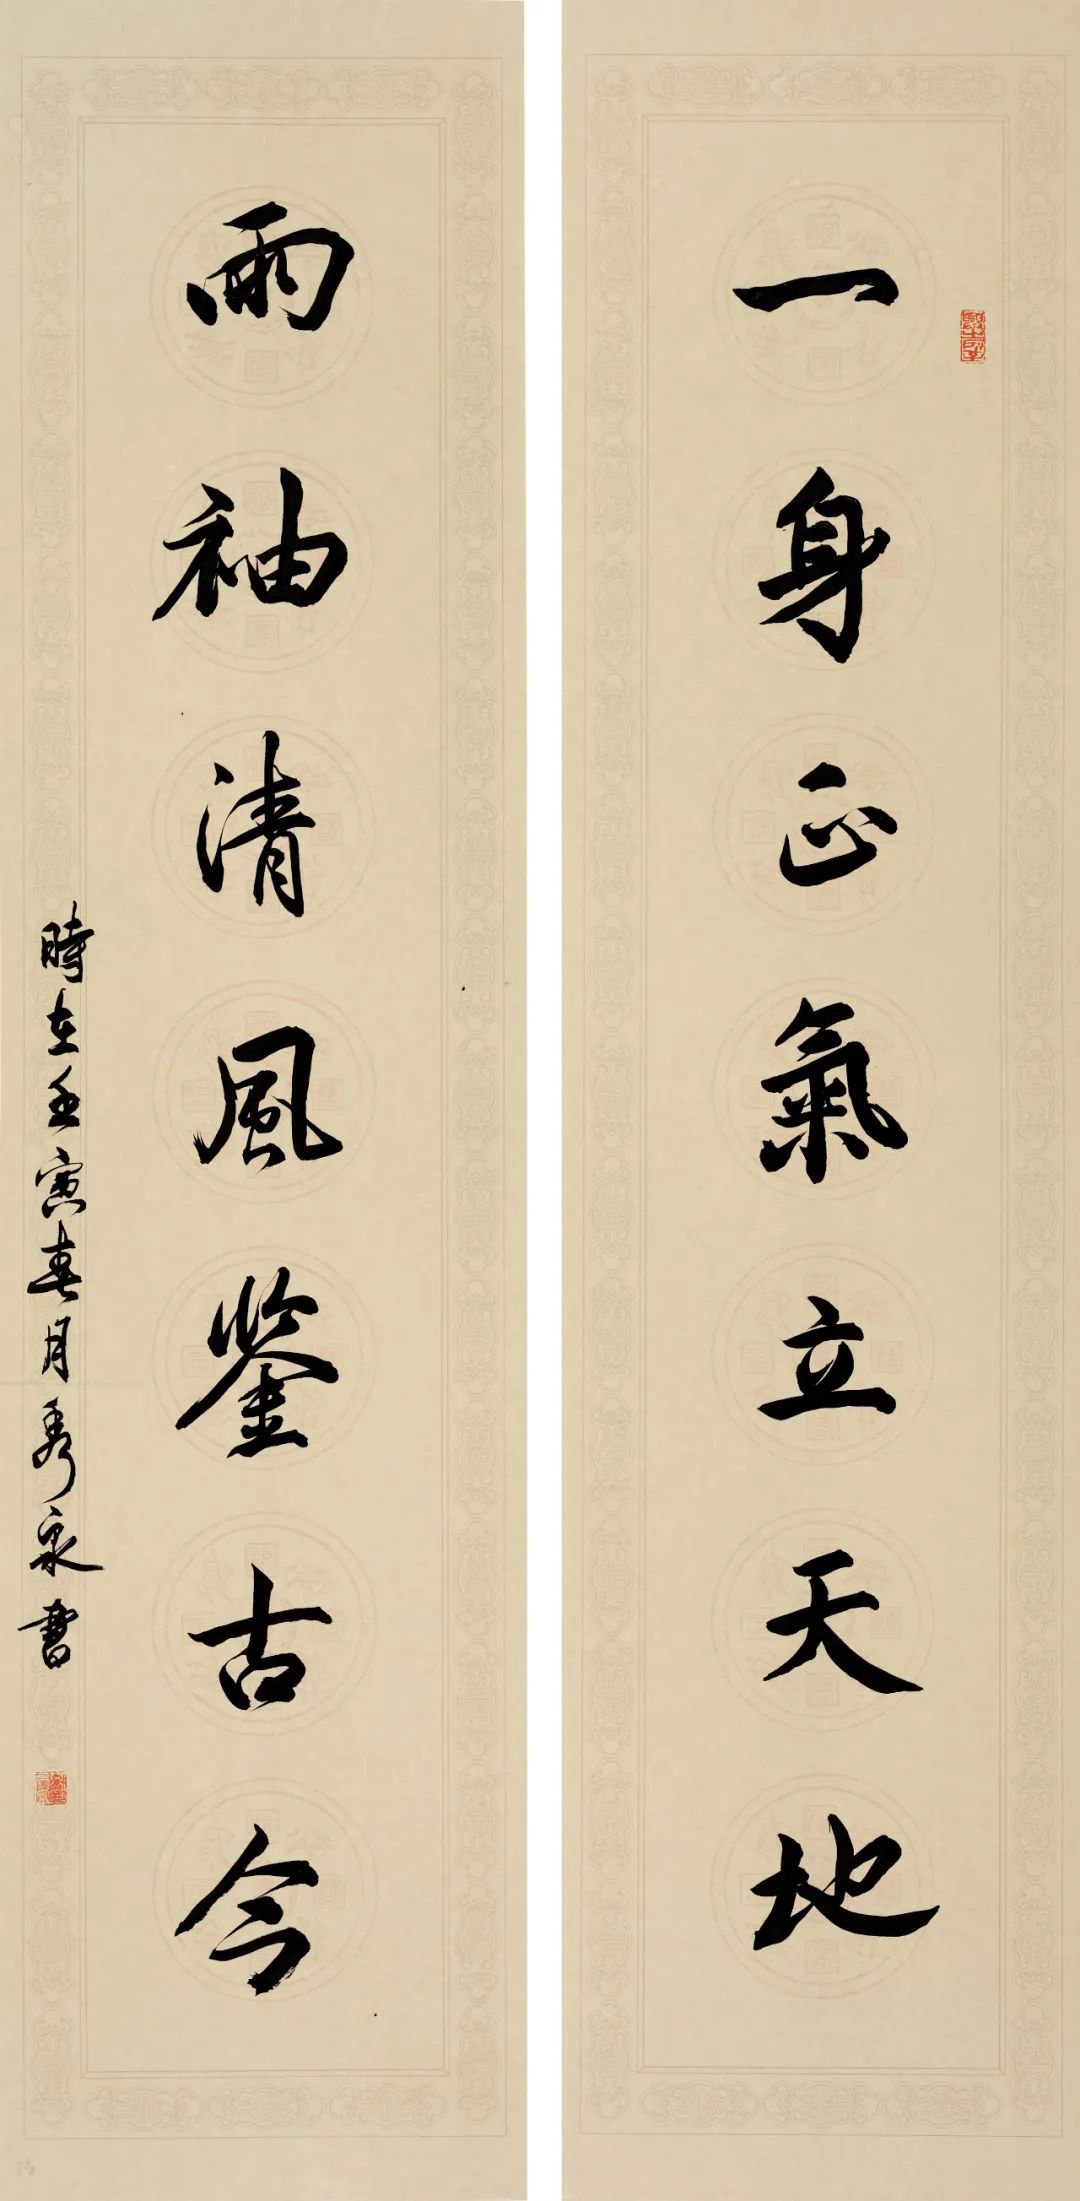 一身正氣立天地
兩袖清風鋻古今
時在壬寅春月秀泉書